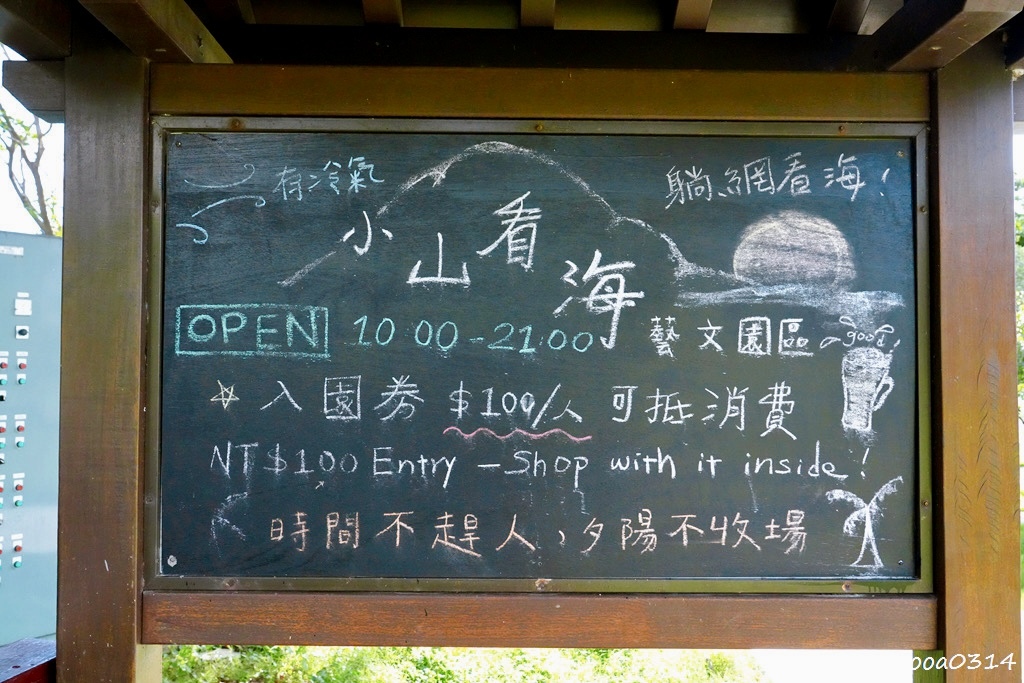 有冷氣
躺網看海!
小山看海
OPEN 10:00-21:00 藝文園區
good!
入園券 $100/人 可抵消費
NT$100 Entry - Shop with it inside!
時間不趕人、夕陽不收場
ooa0314